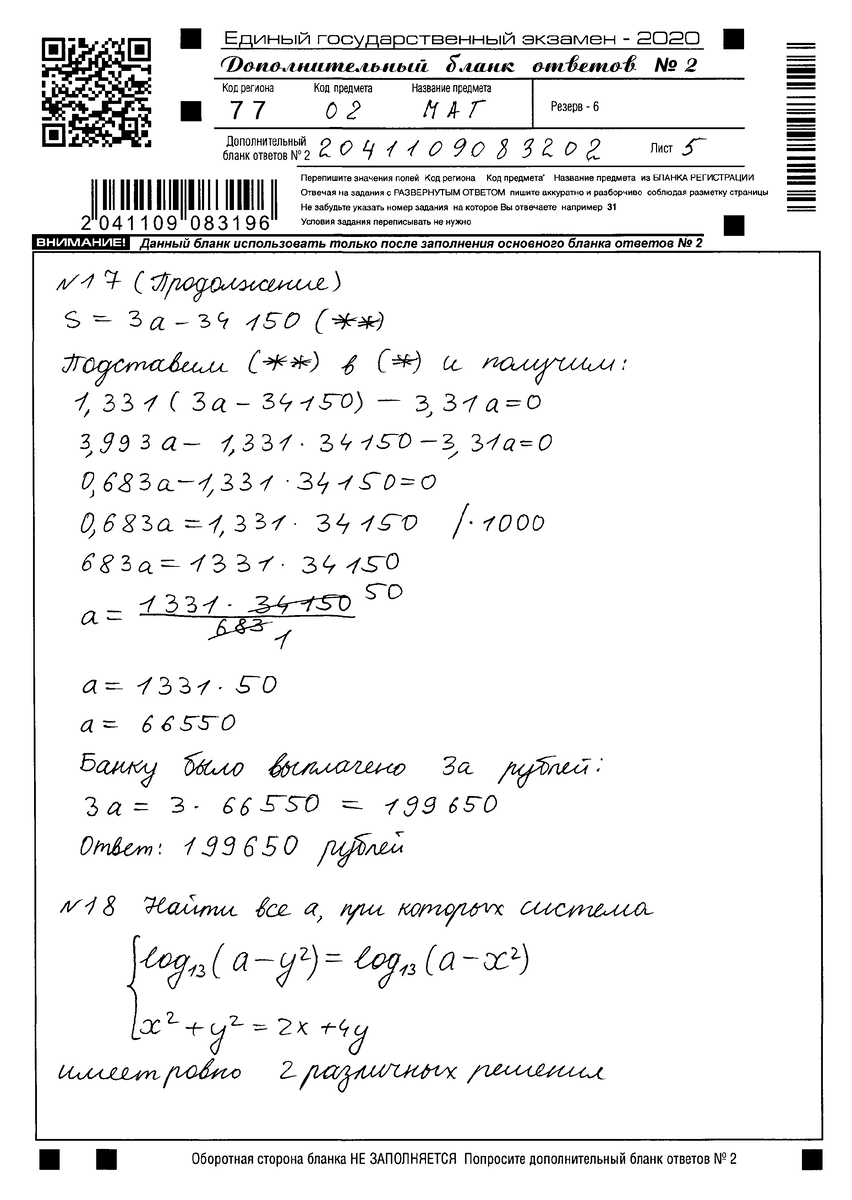 Единый государственный экзамен - 2020
Дополнительный бланк ответов № 2
Код региона Код предмета Название предмета
77 02 МАТ
Резерв - 6
Дополнительный бланк ответов № 2 2041109083202 Лист 5
Перепишите значения полей Код региона Код предмета' Название предмета из БЛАНКА РЕГИСТРАЦИИ
Отвечая на задания с РАЗВЕРНУТЫМ ОТВЕТОМ пишите аккуратно и разборчиво соблюдая разметку страницы
Не забудьте указать номер задания на которое Вы отвечаете например 31
Условия задания переписывать не нужно
2 041109 083196
ВНИМАНИЕ! Данный бланк использовать только после заполнения основного бланка ответов № 2
№17 (Продолжение)
S = 3a - 34 150 (**)
Подставим (**) в (*) и получим:
1,331(3a - 34150) - 3,31a=0
3,993a - 1,331 · 34150 - 3,31a=0
0,683a - 1,331 · 34150=0
0,683a = 1,331 · 34150 /·1000
683a = 1331 · 34150
a = 1331 · 34150 50
683 1
a = 1331 · 50
a = 66550
Банку было выплачено 3a рублей:
3a = 3 · 66550 = 199650
Ответ: 199650 рублей
№18 Найти все a, при которых система
log₁₃(a-y²) = log₁₃(a-x²)
x² + y² = 2x + 4y
имеет ровно 2 различных решения
Оборотная сторона бланка НЕ ЗАПОЛНЯЕТСЯ Попросите дополнительный бланк ответов № 2